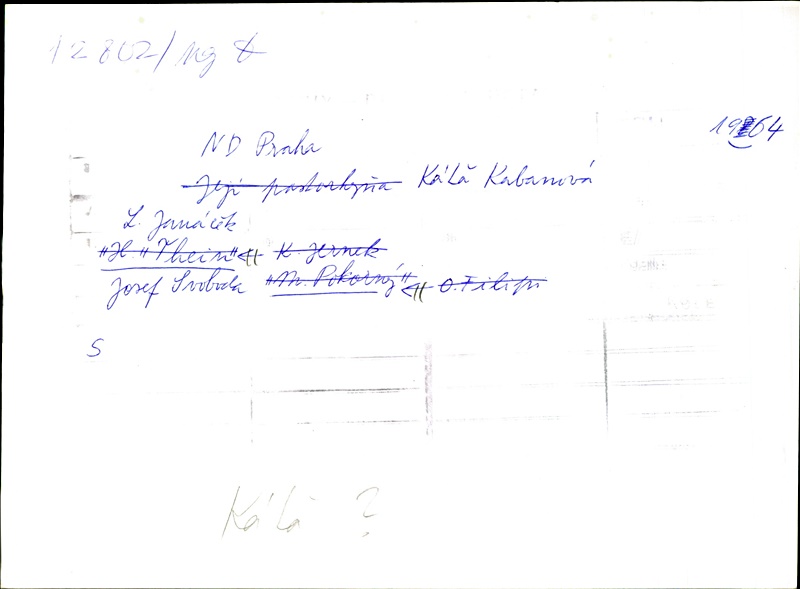 12802/
1964
ND Praha
Její pastorkyňa Káťa Kabanová
L. Janáček
"H." Thein" K. Jernek
Josef Svoboda "M. Pokorný" O. Filipi
S
Káťa ?